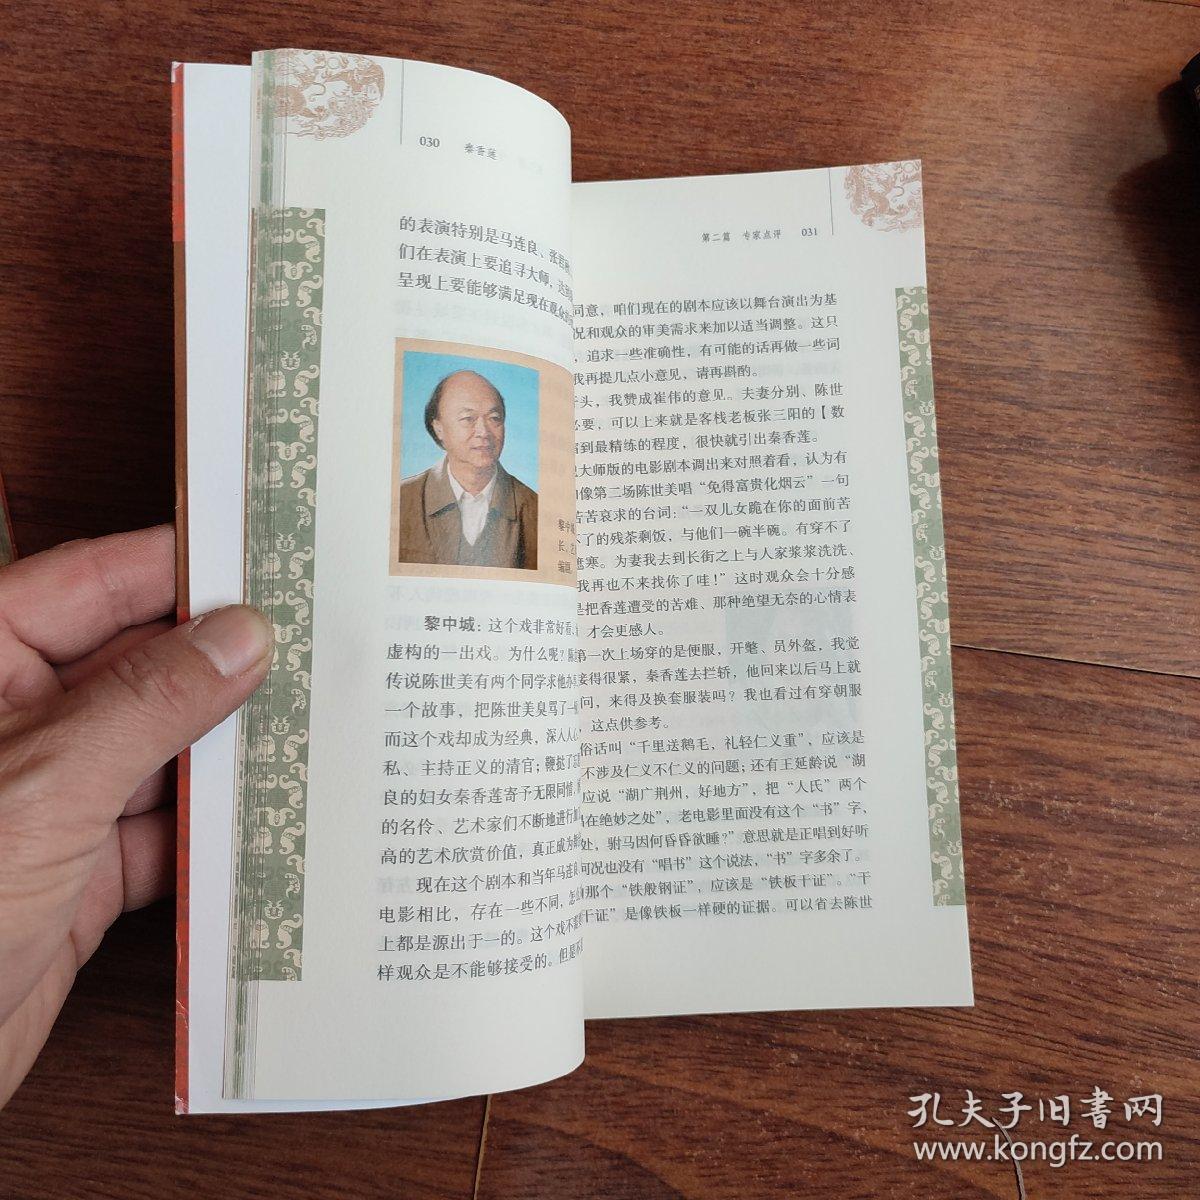 030 秦香莲
的表演特别是马连良、张君
们在表演上要追寻大师，达
呈现上要能够满足现在观众
黎中
长、艺
编剧
黎中城：这个戏非常好看、
虚构的一出戏。为什么呢？
传说陈世美有两个同学求他办
一个故事，把陈世美臭骂了一
而这个戏却成为经典，深入人心
私、主持正义的清官；鞭挞了
良的妇女秦香莲寄予无限同情，
的名伶、艺术家们不断地进行
高的艺术欣赏价值，真正成为
现在这个剧本和当年马连良
电影相比，存在一些不同，怎
上都是源出于一的。这个戏不
样观众是不能够接受的。但是
第二篇 专家点评 031
同意，咱们现在的剧本应该以舞台演出为基
况和观众的审美需求来加以适当调整。这只
，追求一些准确性，有可能的话再做一些词
我再提几点小意见，请再斟酌。
头，我赞成崔伟的意见。夫妻分别、陈世
必要，可以上来就是客栈老板张三阳的【数
到最精练的程度，很快就引出秦香莲。
大师版的电影剧本调出来对照着看，认为有
像第二场陈世美唱“免得富贵化烟云”一句
苦苦哀求的台词：“一双儿女跪在你的面前苦
不了的残茶剩饭，与他们一碗半碗。有穿不了
遮寒。为妻我去到长街之上与人家浆浆洗洗、
我再也不来找你了哇！”这时观众会十分感
是把香莲遭受的苦难、那种绝望无奈的心情表
才会更感人。
第一次上场穿的是便服，开氅、员外盔，我觉
接得很紧，秦香莲去拦轿，他回来以后马上就
问，来得及换套服装吗？我也看过有穿朝服
这点供参考。
俗话叫“千里送鹅毛，礼轻仁义重”，应该是
不涉及仁义不仁义的问题；还有王延龄说“湖
应说“湖广荆州，好地方”，把“人氏”两个
在绝妙之处”，老电影里面没有这个“书”字，
处，驸马因何昏昏欲睡？”意思就是正唱到好听
何况也没有“唱书”这个说法，“书”字多余了。
那个“铁般钢证”，应该是“铁板干证”。“干
干证”是像铁板一样硬的证据。可以省去陈世
孔夫子旧书网
www.kongfz.com